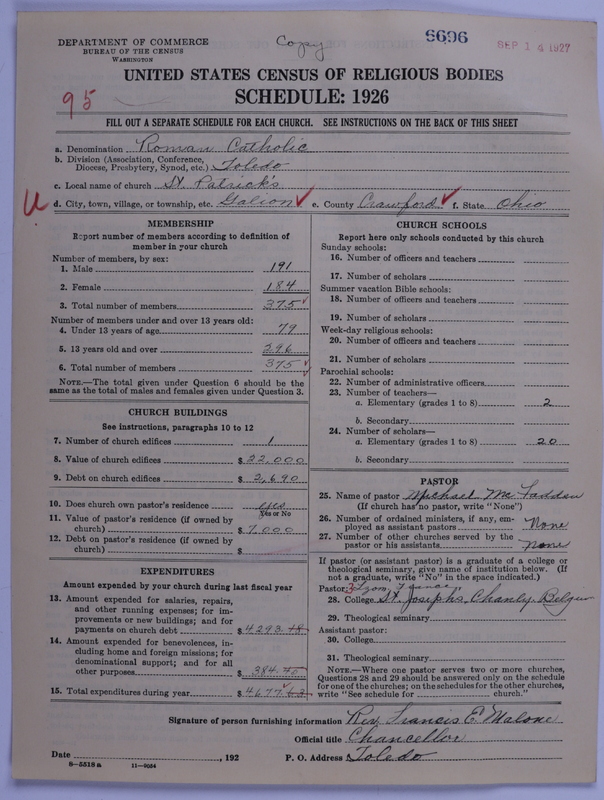 Copy
6696
SEP 14 1927
DEPARTMENT OF COMMERCE
BUREAU OF THE CENSUS
WASHINGTON
UNITED STATES CENSUS OF RELIGIOUS BODIES
SCHEDULE: 1926
95
FILL OUT A SEPARATE SCHEDULE FOR EACH CHURCH. SEE INSTRUCTIONS ON THE BACK OF THIS SHEET
a. Denomination Roman Catholic
b. Division (Association, Conference,
Diocese, Presbytery, Synod, etc.) Toledo
c. Local name of church St. Patrick's
d. City, town, village, or township, etc. Galion e. County Crawford f. State Ohio
MEMBERSHIP
Report number of members according to definition of
member in your church
Number of members, by sex:
1. Male 191
2. Female 184
3. Total number of members 375
Number of members under and over 13 years old:
4. Under 13 years of age 79
5. 13 years old and over 296
6. Total number of members 375
NOTE.—The total given under Question 6 should be the
same as the total of males and females given under Question 3.
CHURCH BUILDINGS
See instructions, paragraphs 10 to 12
7. Number of church edifices 1
8. Value of church edifices $22,000
9. Debt on church edifices $2,690
10. Does church own pastor's residence yes
Yes or No
11. Value of pastor's residence (if owned by
church) $7,000
12. Debt on pastor's residence (if owned by
church) $
EXPENDITURES
Amount expended by your church during last fiscal year
13. Amount expended for salaries, repairs,
and other running expenses; for im-
provements or new buildings; and for
payments on church debt $4293
14. Amount expended for benevolences, in-
cluding home and foreign missions; for
denominational support; and for all
other purposes $384
15. Total expenditures during year $4677
CHURCH SCHOOLS
Report here only schools conducted by this church
Sunday schools:
16. Number of officers and teachers
17. Number of scholars
Summer vacation Bible schools:
18. Number of officers and teachers
19. Number of scholars
Week-day religious schools:
20. Number of officers and teachers
21. Number of scholars
Parochial schools:
22. Number of administrative officers
23. Number of teachers—
a. Elementary (grades 1 to 8) 2
b. Secondary
24. Number of scholars—
a. Elementary (grades 1 to 8) 20
b. Secondary
PASTOR
25. Name of pastor Michael Mc Fadden
(If church has no pastor, write "None")
26. Number of ordained ministers, if any, em-
ployed as assistant pastors None
27. Number of other churches served by the
pastor or his assistants None
If pastor (or assistant pastor) is a graduate of a college or
theological seminary, give name of institution below. (If
not a graduate, write "No" in the space indicated.)
Pastor:
28. College St. Josephs,
29. Theological seminary
Assistant pastor:
30. College
31. Theological seminary
NOTE.—Where one pastor serves two or more churches,
Questions 28 and 29 should be answered only on the schedule
for one of the churches; on the schedules for the other churches,
write "See schedule for church."
Signature of person furnishing information Rev. Francis E. Malone
Official title Chancellor
Date , 192 P. O. Address Toledo
8—5518 a 11—9054